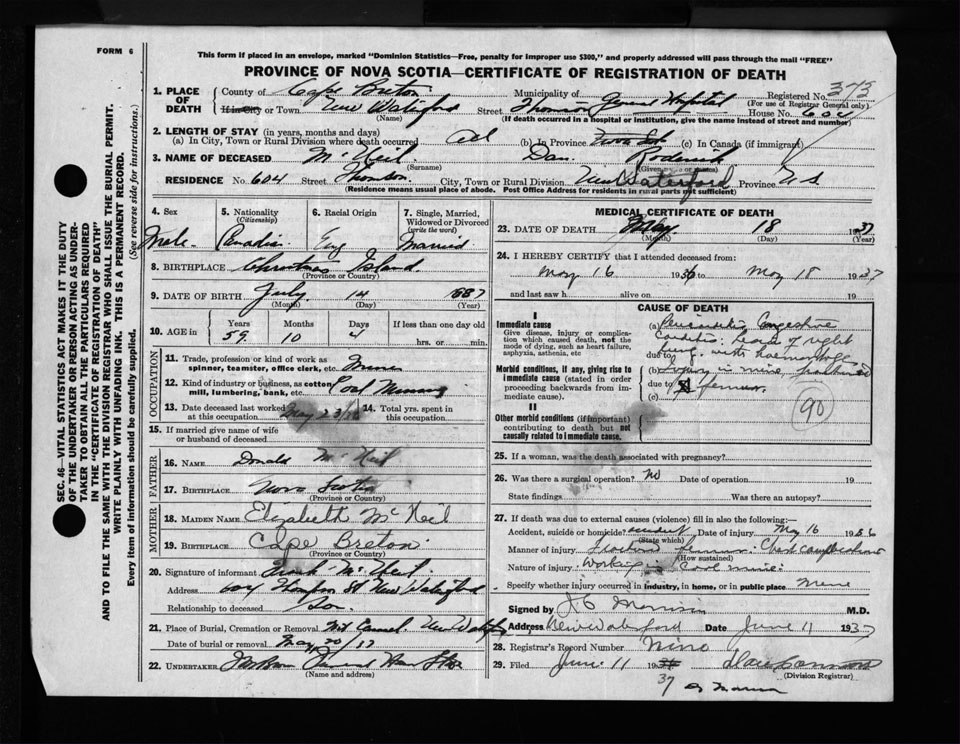 FORM 6
This form if placed in an envelope, marked "Dominion Statistics—Free, penalty for improper use $300," and properly addressed will pass through the mail "FREE"
PROVINCE OF NOVA SCOTIA—CERTIFICATE OF REGISTRATION OF DEATH
SEC. 46—VITAL STATISTICS ACT MAKES IT THE DUTY
OF THE UNDERTAKER OR PERSON ACTING AS UNDER-
TAKER TO OBTAIN ALL THE PARTICULARS REQUIRED
IN THE "CERTIFICATE OF REGISTRATION OF DEATH"
AND TO FILE THE SAME WITH THE DIVISION REGISTRAR WHO SHALL ISSUE THE BURIAL PERMIT.
WRITE PLAINLY WITH UNFADING INK. THIS IS A PERMANENT RECORD.
Every item of information should be carefully supplied. (See reverse side for instructions.)
1. PLACE OF DEATH County of Cape Breton Municipality of Registered No. 373
(For use of Registrar General only)
If in City or Town New Waterford Street Thomson General Hospital House No. 604
(Name) (If death occurred in a hospital or institution, give the name instead of street and number)
2. LENGTH OF STAY (in years, months and days)
(a) In City, Town or Rural Division where death occurred (b) In Province (c) In Canada (if immigrant)
3. NAME OF DECEASED McNeil Dan. Roderick
(Surname) (Given name or names)
RESIDENCE No. 604 Street Thomson City, Town or Rural Division New Waterford Province N.S.
(Residence means usual place of abode. Post Office Address for residents in rural parts not sufficient)
4. Sex Male
5. Nationality (Citizenship) Canadian
6. Racial Origin
7. Single, Married, Widowed or Divorced (write the word) Married
8. BIRTHPLACE Christmas Island
(Province or Country)
9. DATE OF BIRTH July 14
(Month) (Day) (Year)
10. AGE in Years 59 Months 10 Days 4 If less than one day old
hrs. or min.
OCCUPATION
11. Trade, profession or kind of work as
spinner, teamster, office clerk, etc. Miner
12. Kind of industry or business, as cotton
mill, lumbering, bank, etc. Coal Mining
13. Date deceased last worked
at this occupation
14. Total yrs. spent in
this occupation
15. If married give name of wife
or husband of deceased
FATHER
16. NAME Donald McNeil
17. BIRTHPLACE Nova Scotia
(Province or Country)
MOTHER
18. MAIDEN NAME Elizabeth McNeil
19. BIRTHPLACE Cape Breton
(Province or Country)
20. Signature of informant McNeil
Address Thompson St New Waterford
Relationship to deceased Son
21. Place of Burial, Cremation or Removal Mt Carmel New Waterford
Date of burial or removal May 20
22. UNDERTAKER
(Name and address)
MEDICAL CERTIFICATE OF DEATH
23. DATE OF DEATH May 18 1937
(Month) (Day) (Year)
24. I HEREBY CERTIFY that I attended deceased from:
May 16 1936 to May 18 1937
and last saw h alive on 19
CAUSE OF DEATH
I
Immediate cause
Give disease, injury or complica-
tion which caused death, not the
mode of dying, such as heart failure,
asphyxia, asthenia, etc
(a)
due to
Morbid conditions, if any, giving rise to
immediate cause (stated in order
proceeding backwards from im-
mediate cause).
(b) Injury in mine
due to
(c)
90
II
Other morbid conditions (if important)
contributing to death but not
causally related to immediate cause.
25. If a woman, was the death associated with pregnancy?
26. Was there a surgical operation? No Date of operation 19
State findings Was there an autopsy?
27. If death was due to external causes (violence) fill in also the following:—
Accident, suicide or homicide? accident Date of injury May 16 1936
(State which)
Manner of injury
(How sustained)
Nature of injury Working in Coal mine
Specify whether injury occurred in industry, in home, or in public place Mine
Signed by M.D.
Address New Waterford Date June 11 1937
28. Registrar's Record Number
29. Filed June 11 19
37
(Division Registrar)